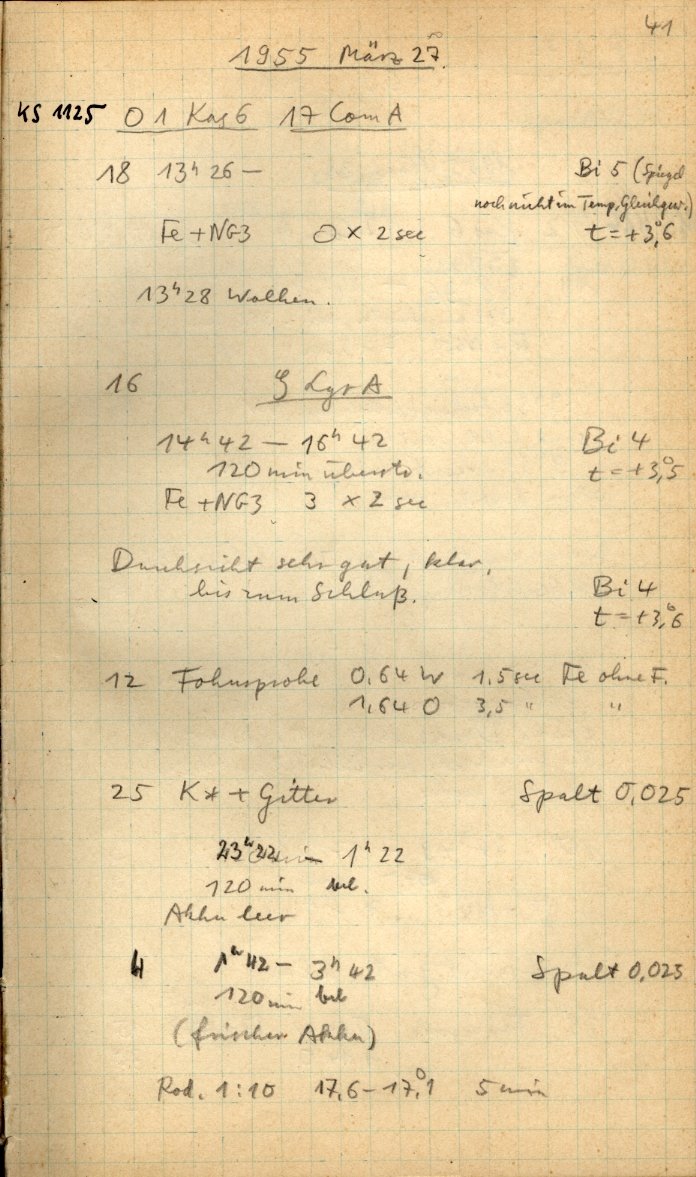 41
1955 März 27.
KS 1125 O 1 Kas 6 17 Com A
18 13ʰ 26 — Bi 5 (Spiegel
noch nicht im Temp. Gleichgew.)
Fe + NG3 0 × 2 sec t = +3,°6
13ʰ 28 Wolken.
16 ζ Lyr A
14ʰ 42 — 16ʰ 42 Bi 4
120 min überstr. t = +3,°5
Fe + NG3 3 × 2 sec
Durchsicht sehr gut, klar,
bis zum Schluß. Bi 4
t = +3,°6
12 Fokusprobe 0,64 W 1,5 sec Fe ohne F.
1,64 O 3,5 " "
25 K* + Gitter Spalt 0,025
23ʰ 22 — 1ʰ 22
120 min bel.
Akku leer
4 1ʰ 42 — 3ʰ 42 Spalt 0,025
120 min bel
(frischer Akku)
Rod. 1:10 17,6 – 17,°1 5 min